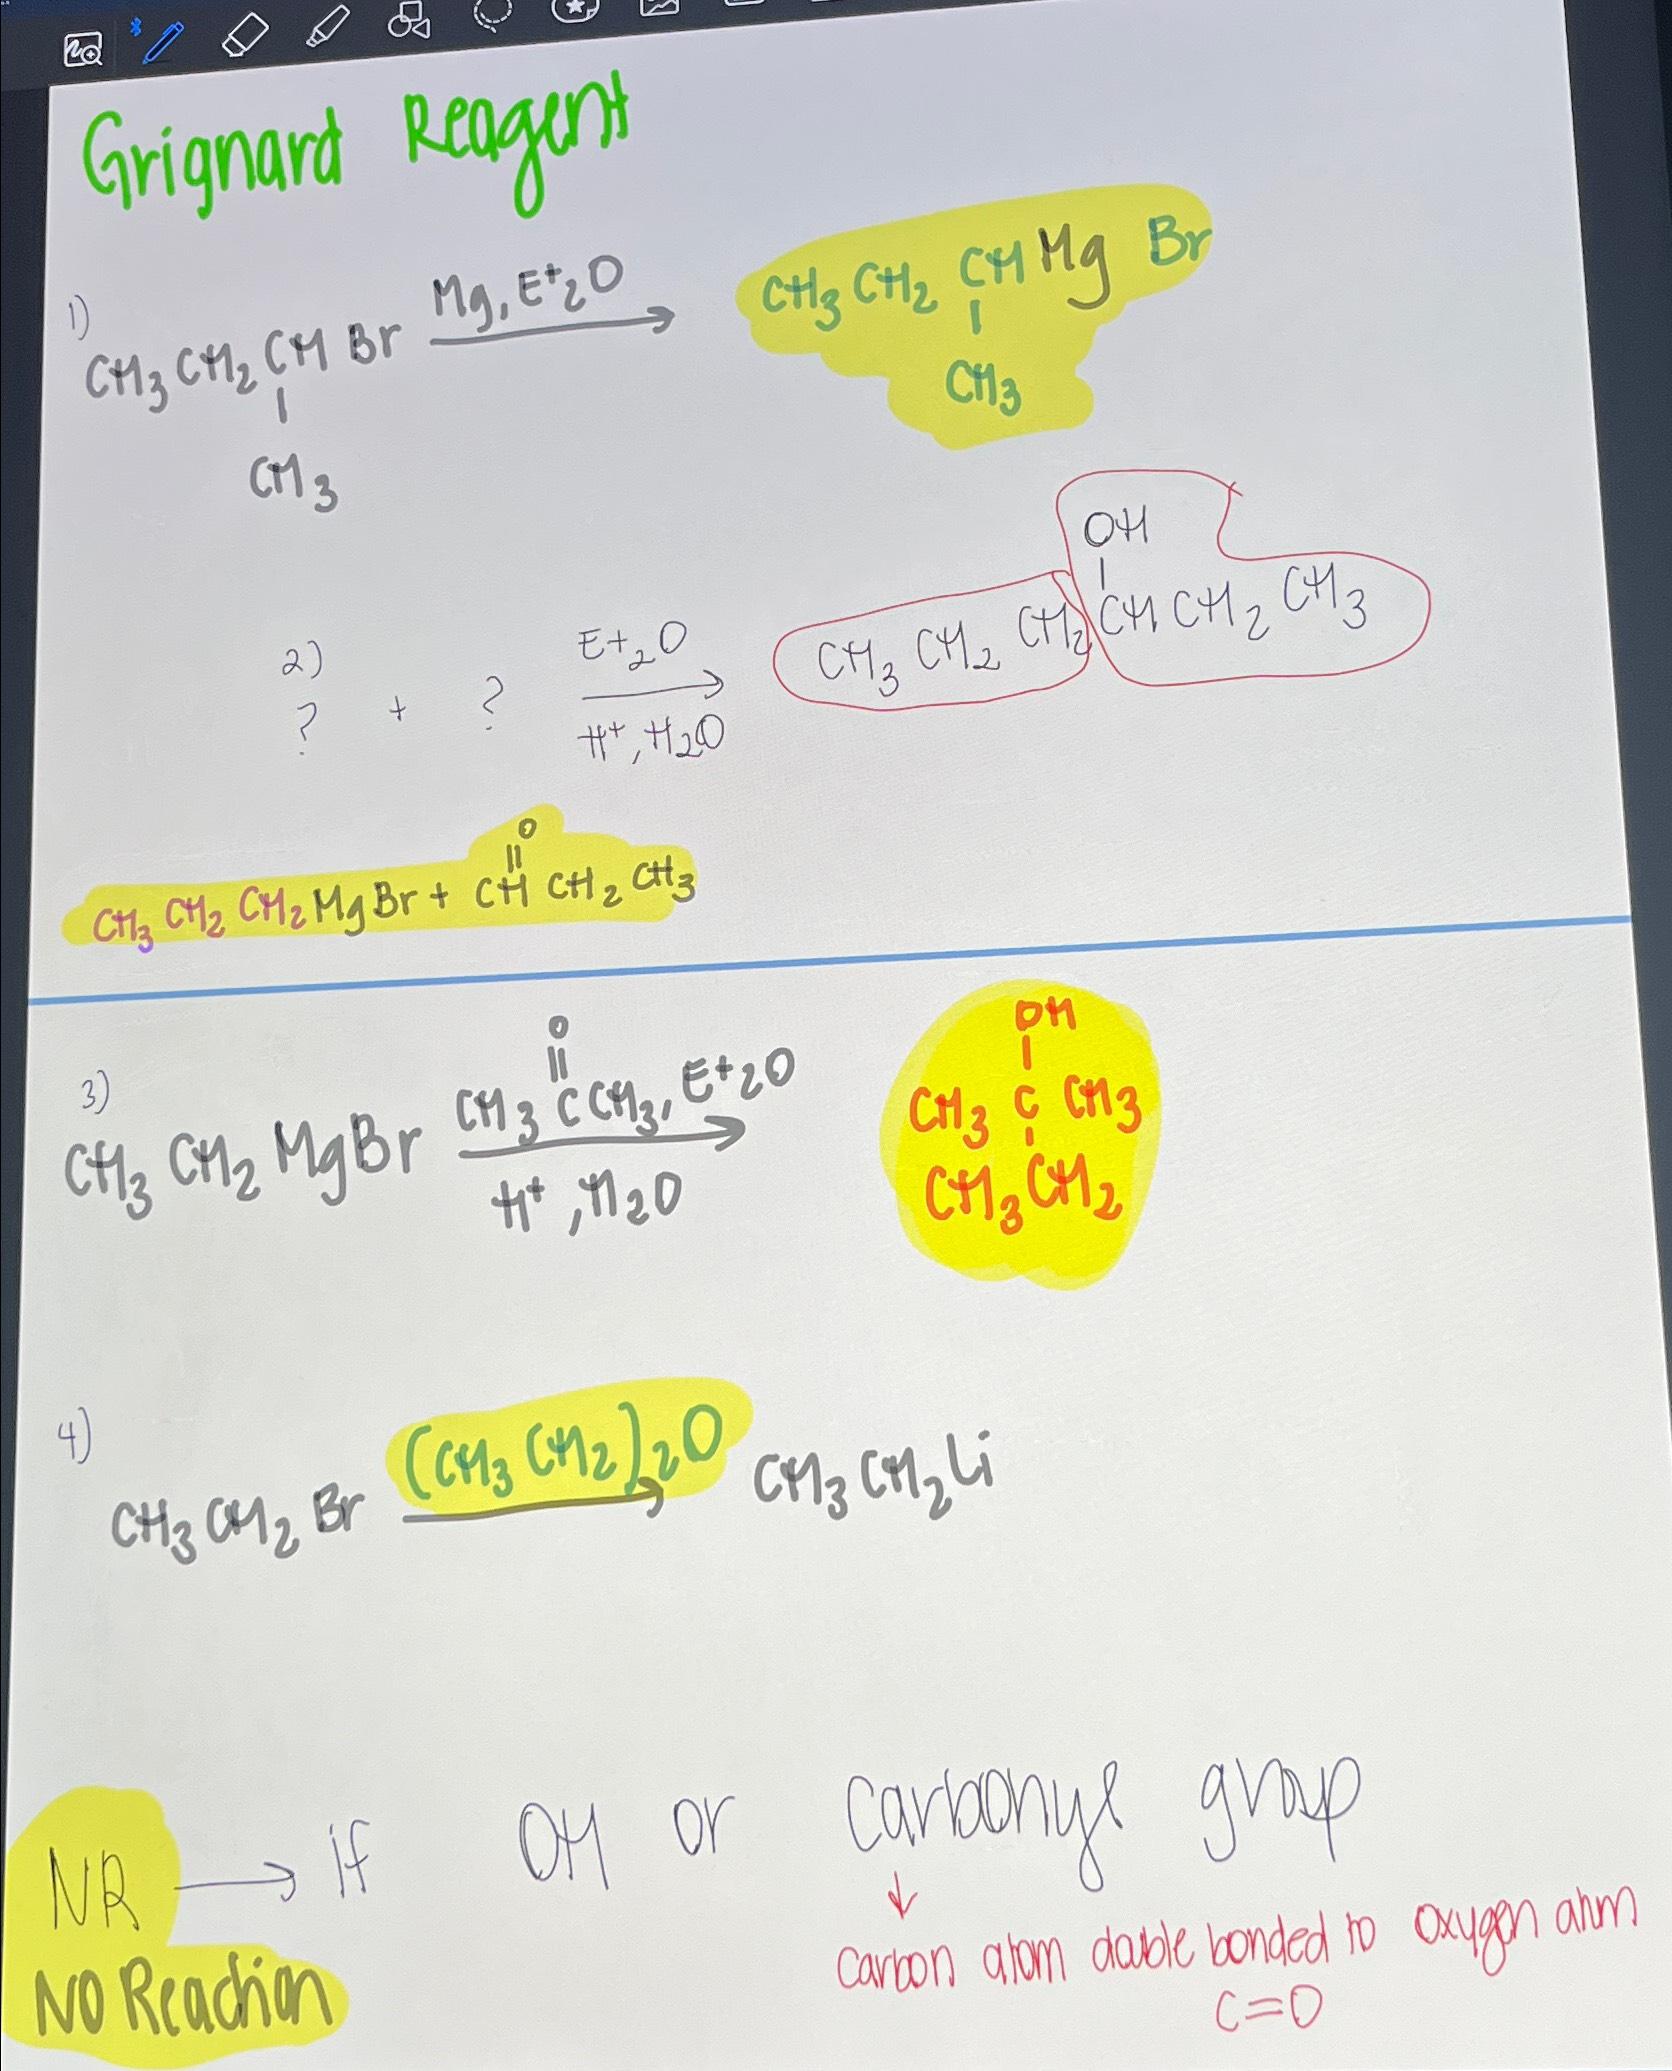 Grignard Reagent
1)
CH3 CH2 CH Br Mg, Et2O CH3 CH2 CH Mg Br
CH3
CH3
2)
? + ? Et2O
H+, H2O
OH
CH3 CH2 CH2 CH CH2 CH3
O
CH3 CH2 CH2 Mg Br + CH CH2 CH3
3)
O
CH3 CH2 MgBr CH3 C CH3, Et2O
H+, H2O
OH
CH3 C CH3
CH3 CH2
4)
CH3 CH2 Br (CH3 CH2)2O CH3 CH2 Li
NR → if OH or Carbonyl group
No Reaction
↓
carbon atom double bonded to oxygen atom
C=O